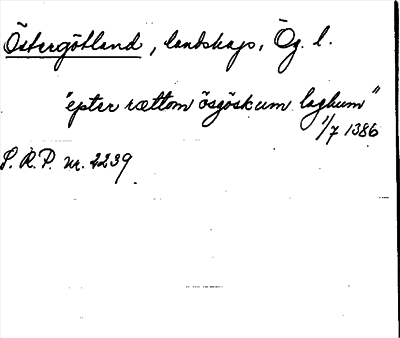 Östergötland, landskap, Ög. l.
"epter rættom ösgöskum laghum"
1/7 1386
S.R.P. nr. 2239